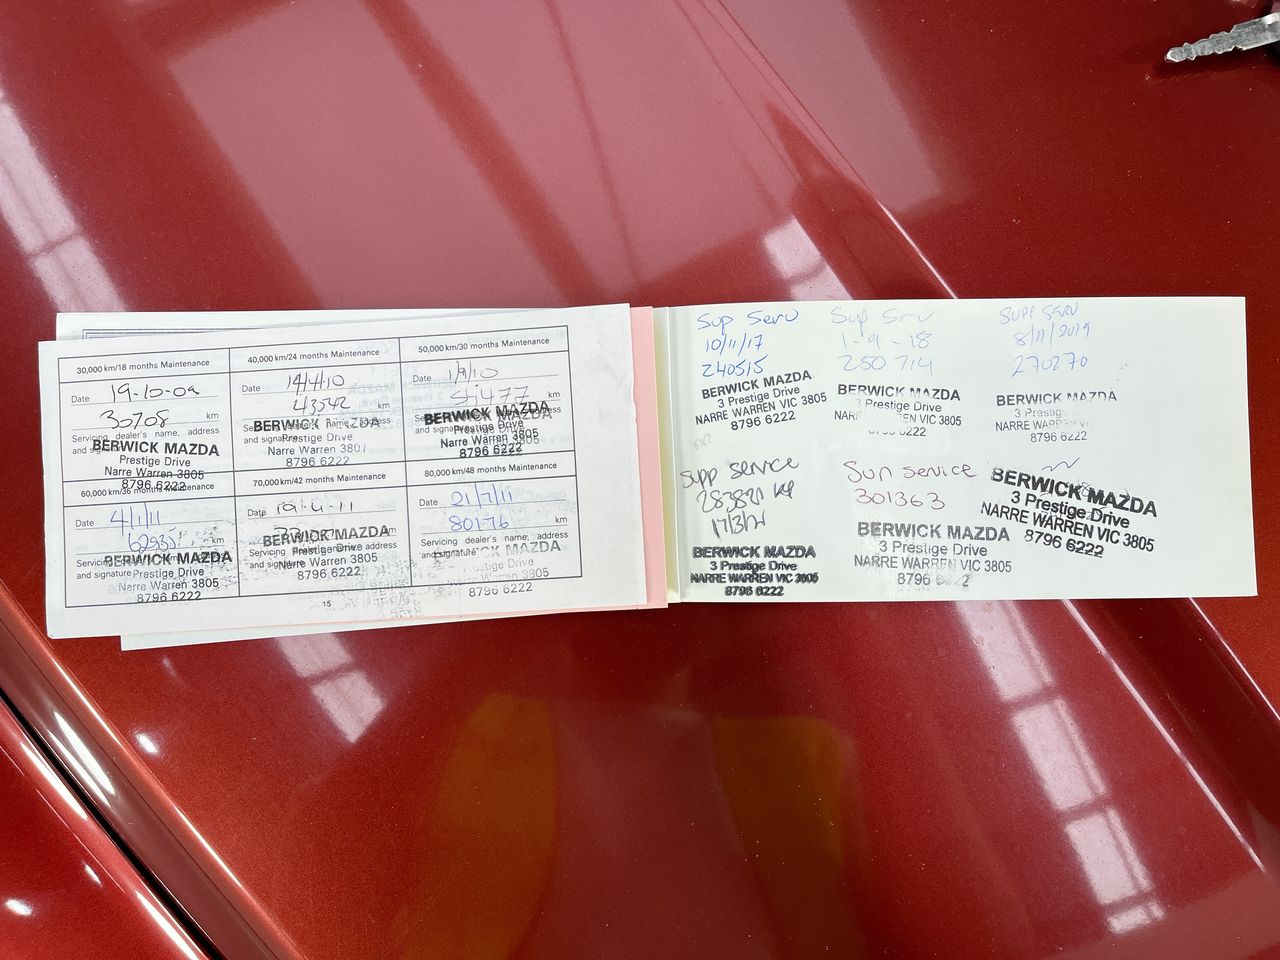 30,000 km/18 months Maintenance
Date 19-10-09
30708 km
Servicing dealer's name, address
and signature
BERWICK MAZDA
Prestige Drive
Narre Warren 3805
8796 6222
40,000 km/24 months Maintenance
Date 14/4/10
43542
BERWICK MAZDA
and signature
Prestige Drive
Narre Warren 3801
8796 6222
50,000 km/30 months Maintenance
Date 1/9/10
km
BERWICK MAZDA
Prestige Drive
Narre Warren 3805
8796 6222
60,000 km/36 months Maintenance
Date 4/1/11
km
BERWICK MAZDA
and signature
Prestige Drive
Narre Warren 3805
8796 6222
70,000 km/42 months Maintenance
Date 19-4-11
km
BERWICK MAZDA
Servicing dealer's name, address
and signature
Prestige Drive
Narre Warren 3805
8796 6222
80,000 km/48 months Maintenance
Date 21/7/11
80176 km
Servicing dealer's name, address
and signature
BERWICK MAZDA
Prestige Drive
Narre Warren 3805
8796 6222
15
Sup Serv
10/11/17
240515
BERWICK MAZDA
3 Prestige Drive
NARRE WARREN VIC 3805
8796 6222
Sup Srv
1-9-18
250 714
BERWICK MAZDA
3 Prestige Drive
NARRE WARREN VIC 3805
Supp Serv
8/11/2019
270270
BERWICK MAZDA
3 Prestige
NARRE WARREN
8796 6222
Supp Service
17/3/21
BERWICK MAZDA
3 Prestige Drive
NARRE WARREN VIC 3805
8796 6222
Sup Service
301363
BERWICK MAZDA
3 Prestige Drive
NARRE WARREN VIC 3805
8796
BERWICK MAZDA
3 Prestige Drive
NARRE WARREN VIC 3805
8796 6222